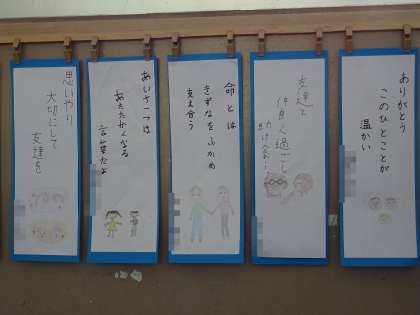 ありがとう
このひとことが
温かい
友達と
仲良く過ごし
助け合い
命とは
きずなをふかめ
支え合う
あいさつは
あたたかくなる
言葉だよ
思いやり
大切にして
友達を